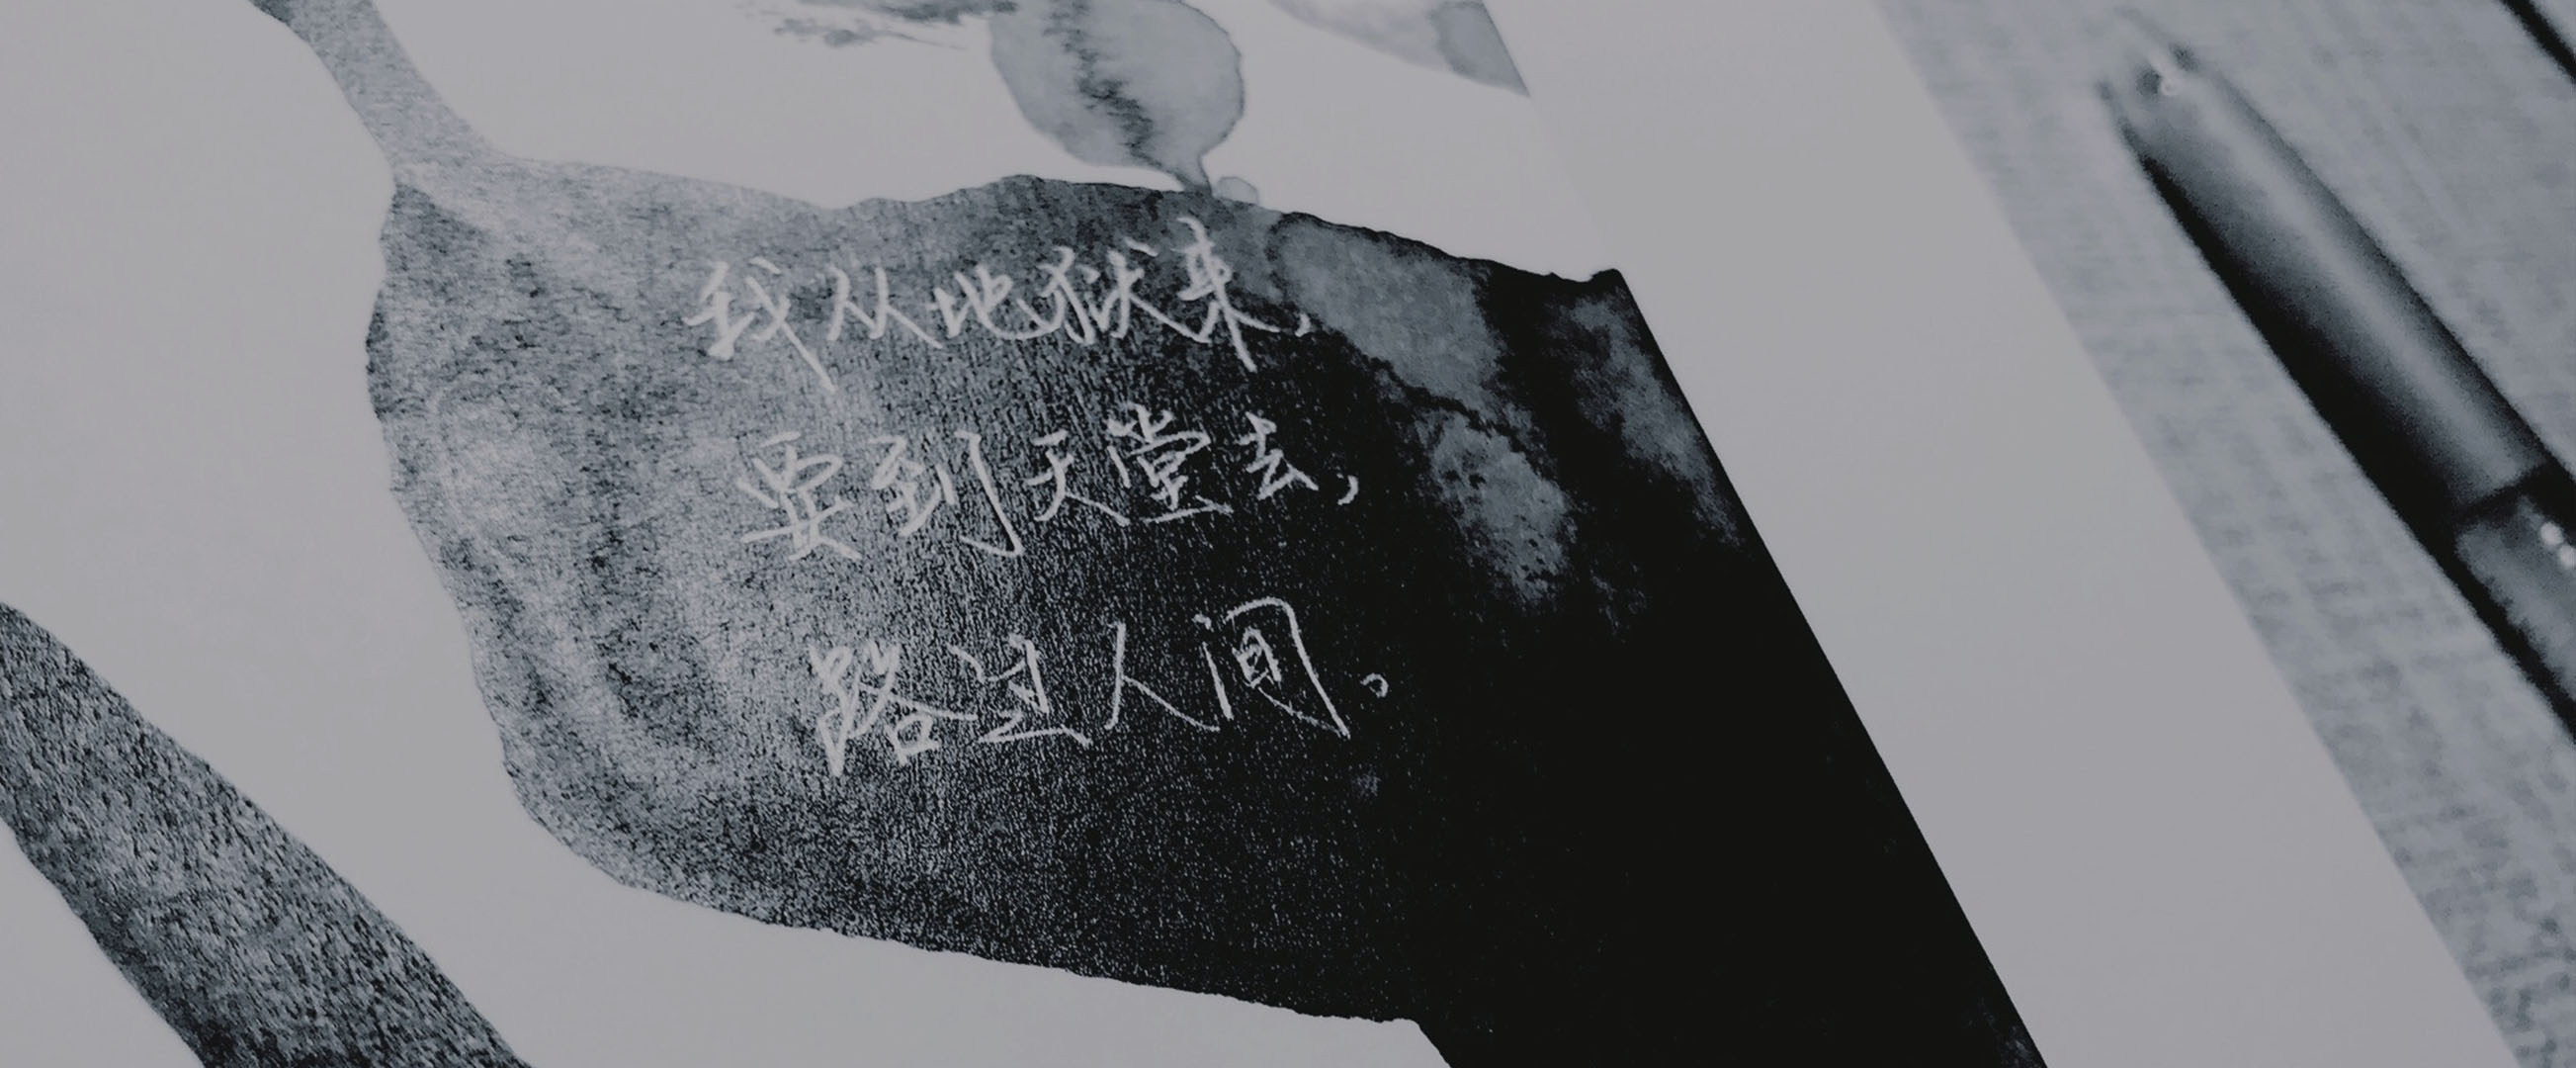 我从地狱来，
要到天堂去，
路过人间。